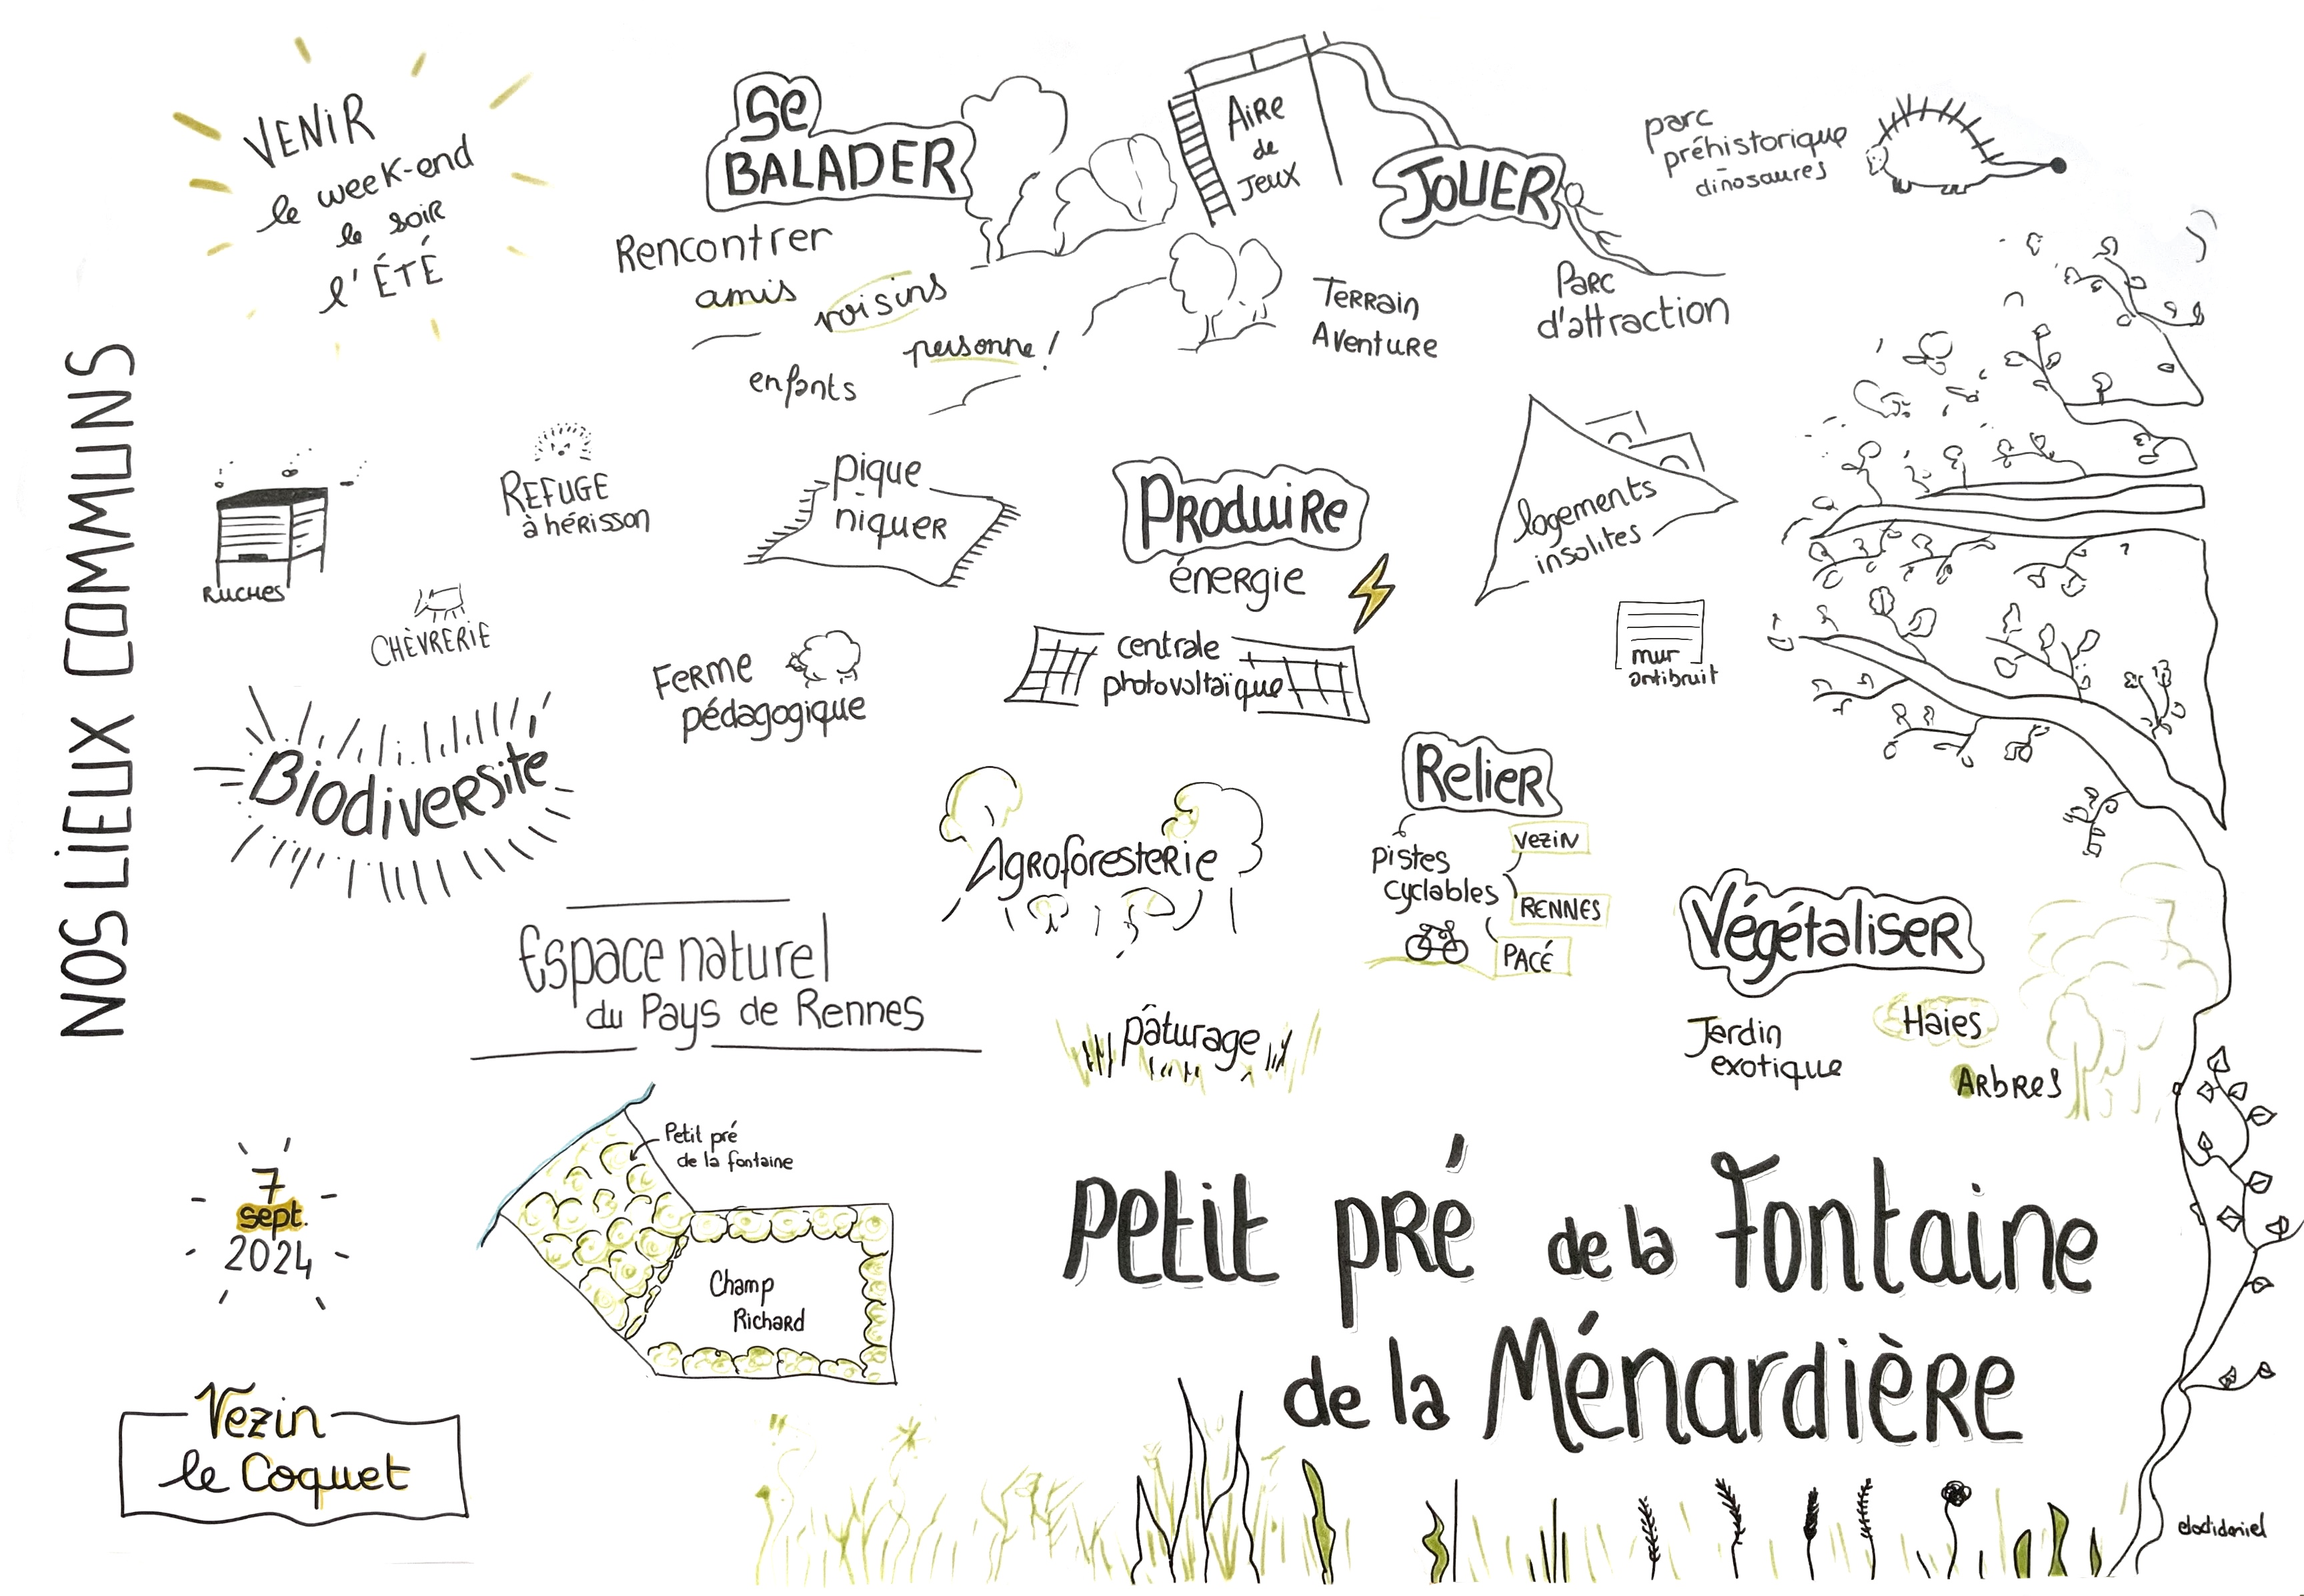 NOS LIEUX COMMUNS
VENIR
le week-end
le soir
l'ÉTÉ
Se
BALADER
Rencontrer
amis
voisins
personne !
enfants
AIRE
de
JEUX
JOUER
TERRAIN
AVENTURE
PARC
d'attraction
parc
préhistorique
dinosaures
RUCHES
REFUGE
à hérisson
CHÈVRERIE
pique
niquer
PRODUIRE
énergie
centrale
photovoltaïque
logements
insolites
mur
antibruit
Ferme
pédagogique
Biodiversite
Espace naturel
du Pays de Rennes
Agroforesterie
pâturage
Relier
pistes
cyclables
VEZIN
RENNES
PACÉ
Végétaliser
Jardin
exotique
Haies
ARbRes
7
sept.
2024
Vezin
le Coquet
Petit pré
de la fontaine
Champ
Richard
Petit pré de la Fontaine
de la Ménardière